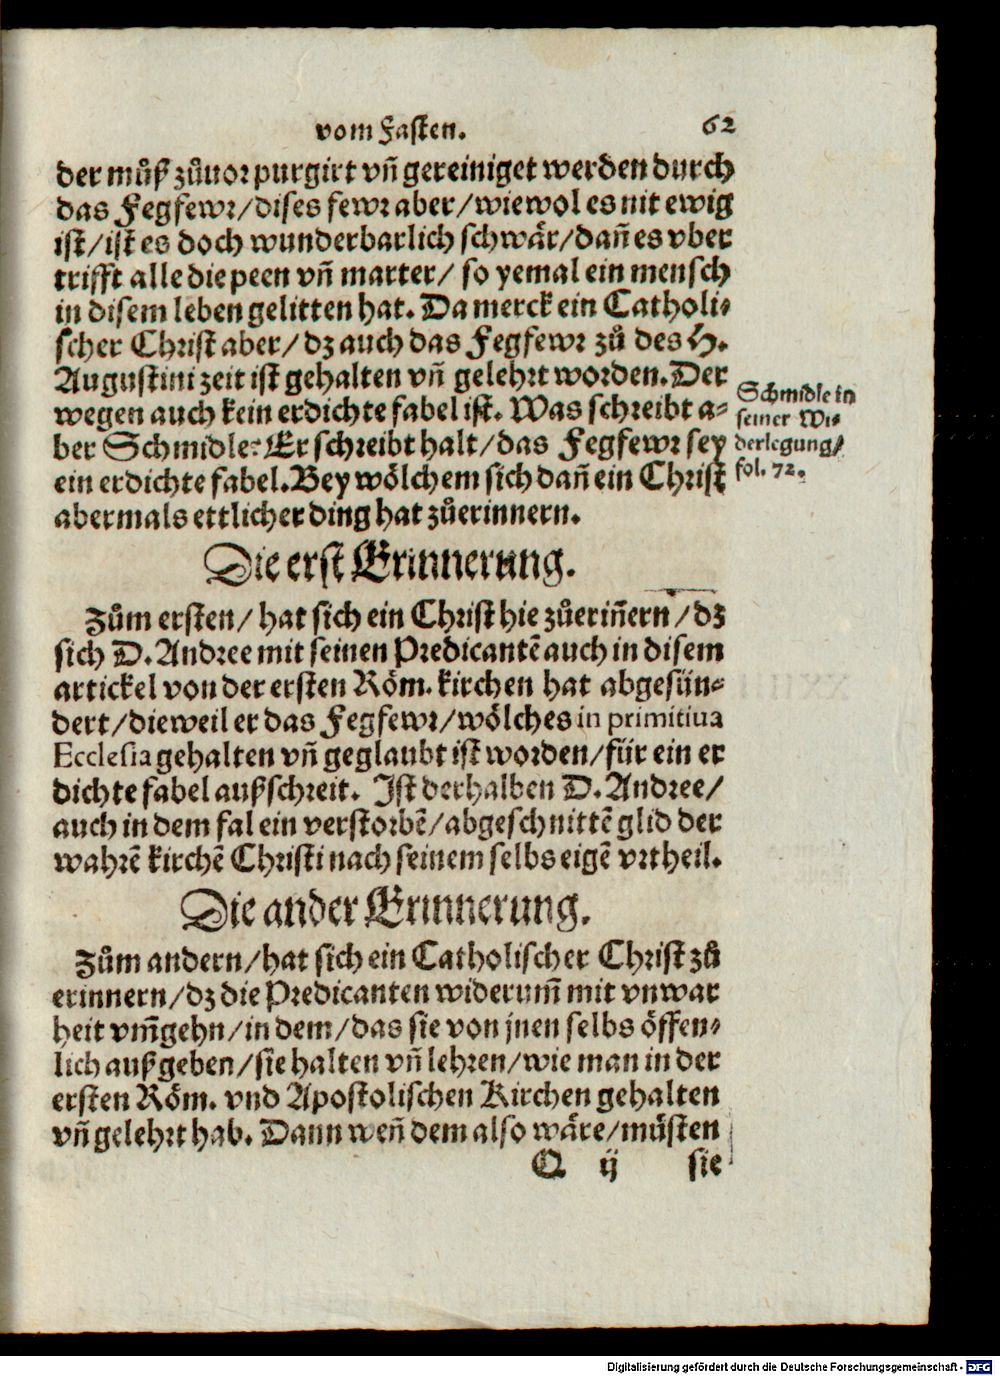 vom Fasten. 62
der můß zůuor purgirt vñ gereiniget werden durch
das Fegfewr/dises fewr aber/wiewol es nit ewig
ist/ist es doch wunderbarlich schwär/dañ es vber
trifft alle die peen vñ marter/ so yemal ein mensch
in disem leben gelitten hat. Da merck ein Catholi-
scher Christ aber/dz auch das Fegfewr zů des H.
Augustini zeit ist gehalten vñ gelehrt worden. Der
wegen auch kein erdichte fabel ist. Was schreibt a-
ber Schmidle? Er schreibt halt/das Fegfewr sey
ein erdichte fabel. Bey wölchem sich dañ ein Christ
abermals ettlicher ding hat zůerinnern.
Schmidle in
seiner Wi-
derlegung/
fol. 72.
Die erst Erinnerung.
Zům ersten/ hat sich ein Christ hie zůeriñern/dz
sich D. Andree mit seinen Predicantē auch in disem
artickel von der ersten Röm. kirchen hat abgesün-
dert/dieweil er das Fegfewr/wölches in primitiua
Ecclesia gehalten vñ geglaubt ist worden/für ein er
dichte fabel außschreit. Ist derhalben D. Andree/
auch in dem fal ein verstorbē/abgeschnittē glid der
wahrē kirchē Christi nach seinem selbs eigē vrtheil.
Die ander Erinnerung.
Zům andern/hat sich ein Catholischer Christ zů
erinnern/dz die Predicanten widerum̃ mit vnwar
heit vm̃gehn/in dem/das sie von jnen selbs öffen-
lich außgeben/sie halten vñ lehren/wie man in der
ersten Röm. vnd Apostolischen Kirchen gehalten
vñ gelehrt hab. Dann weñ dem also wäre/müsten
Q ij sie
Digitalisierung gefördert durch die Deutsche Forschungsgemeinschaft - DFG